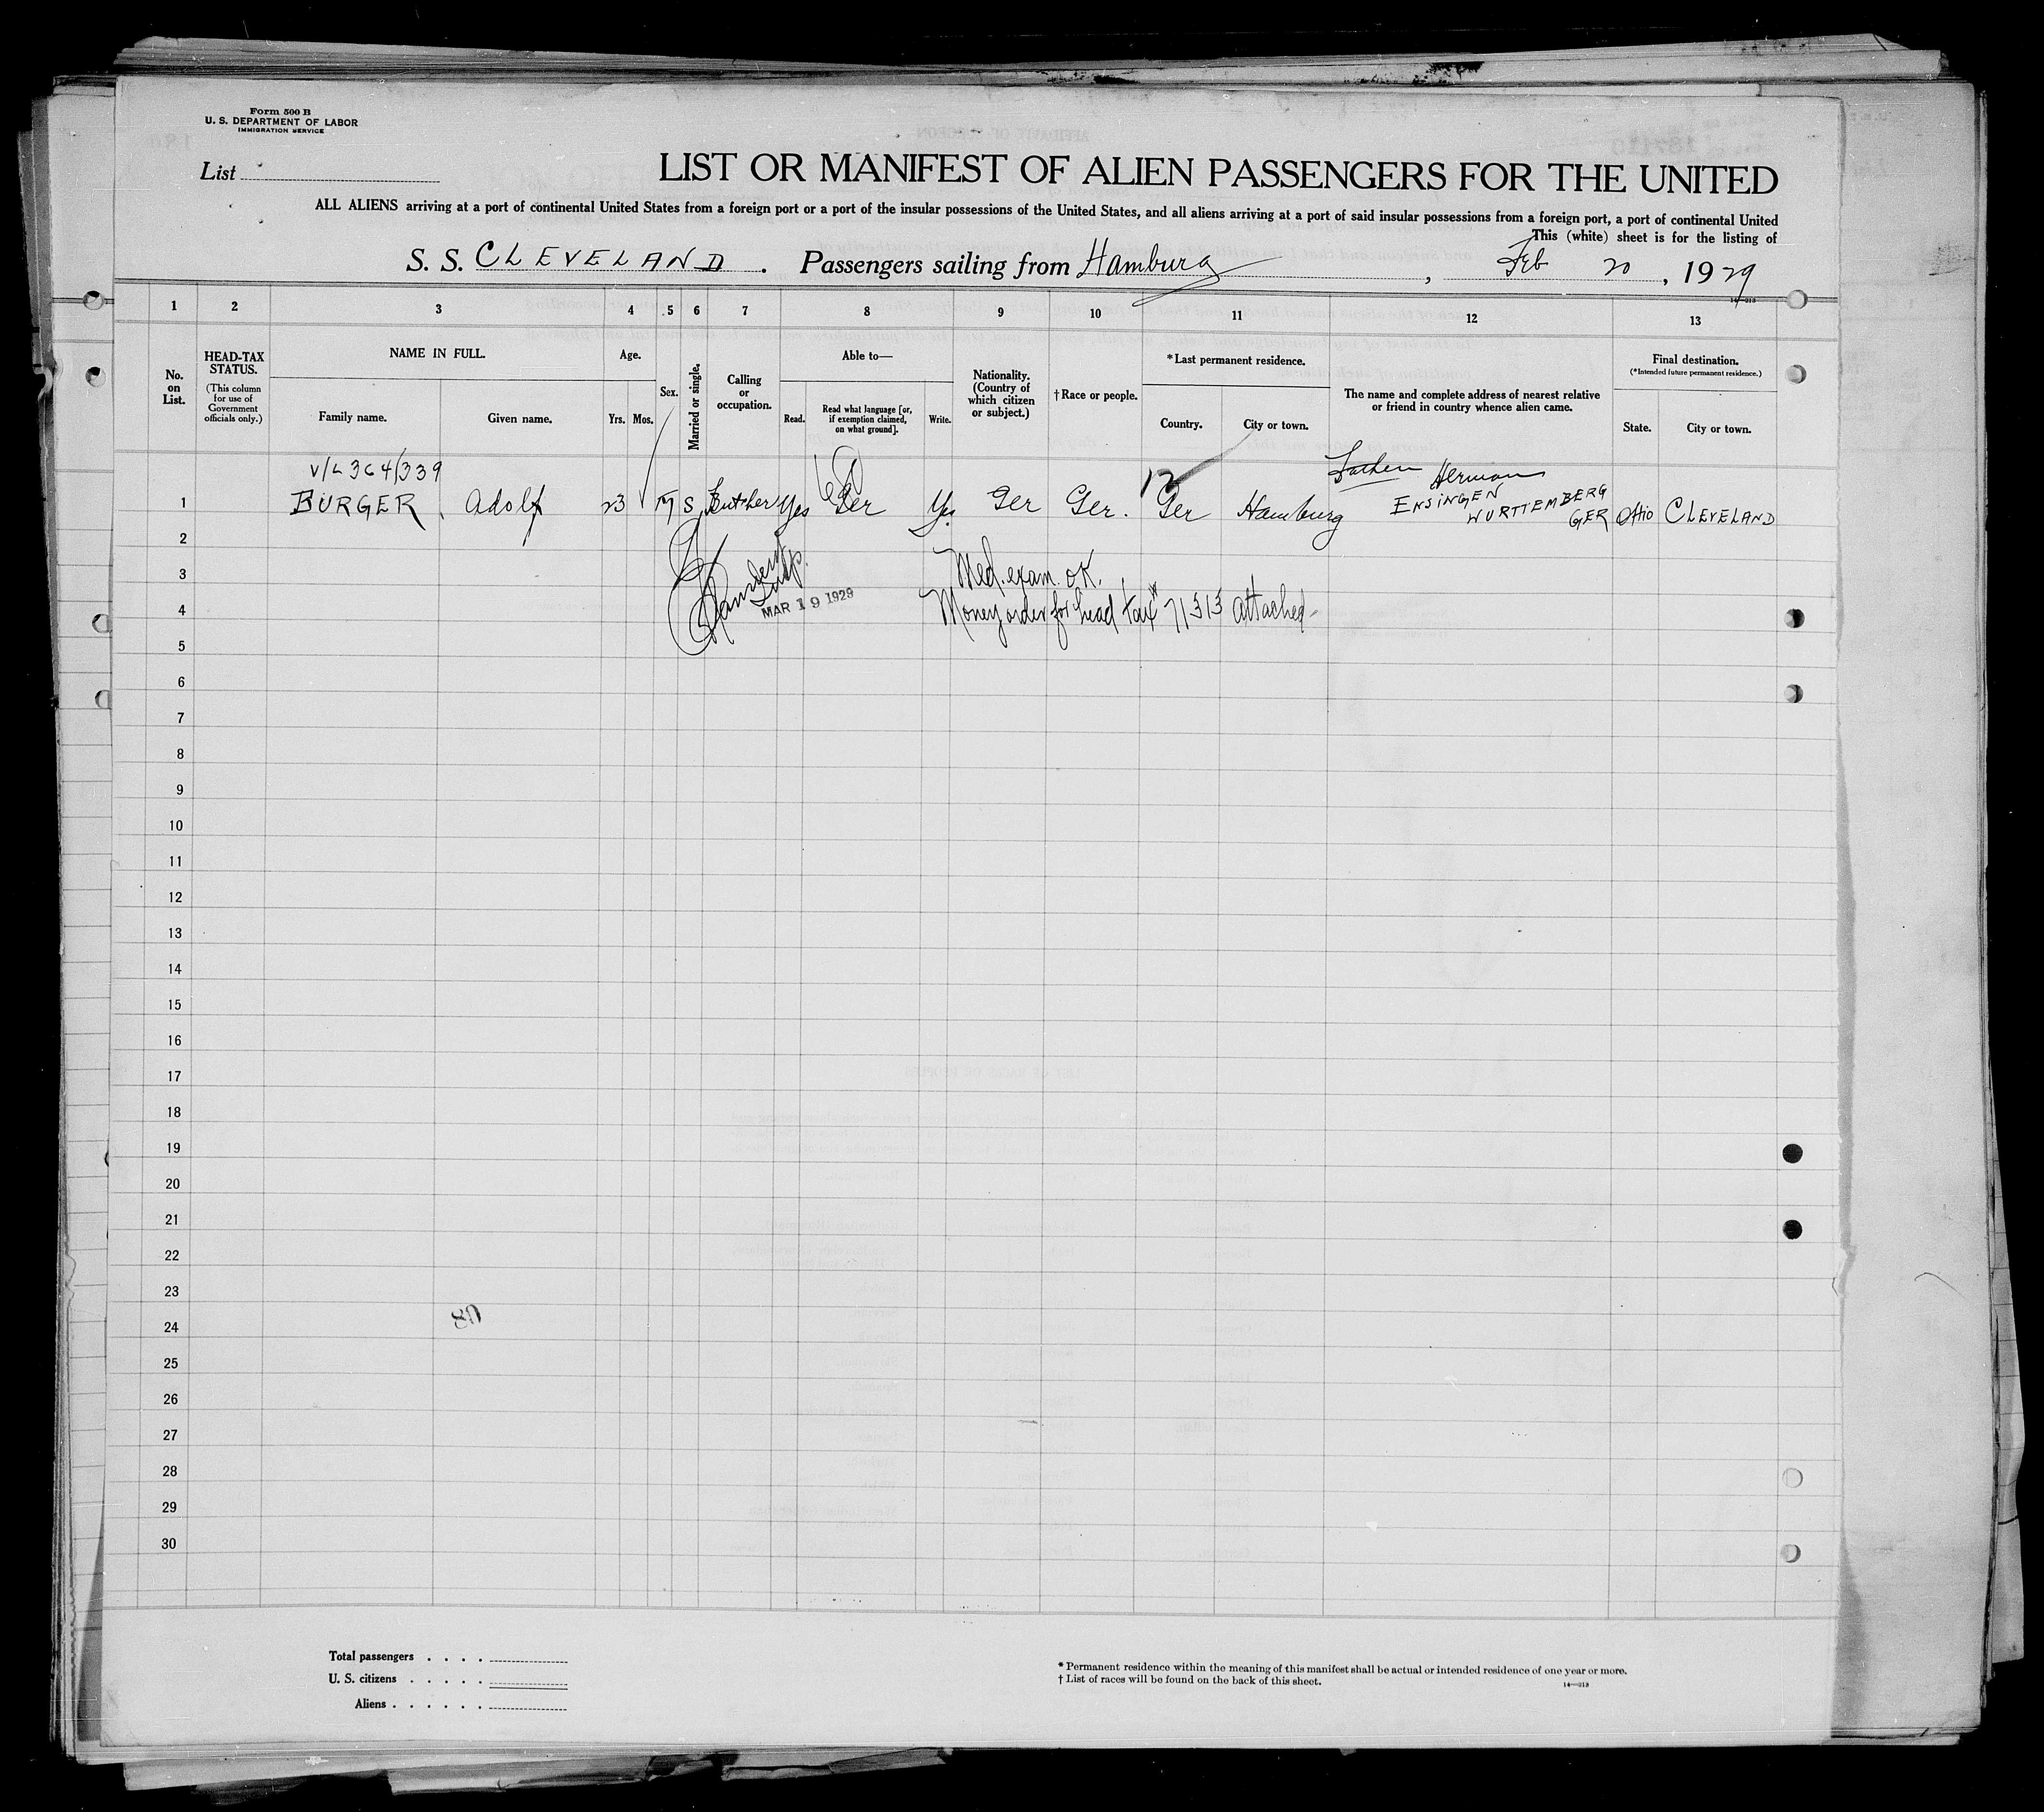 Form 500 B
U. S. DEPARTMENT OF LABOR
IMMIGRATION SERVICE
List
LIST OR MANIFEST OF ALIEN PASSENGERS FOR THE UNITED
ALL ALIENS arriving at a port of continental United States from a foreign port or a port of the insular possessions of the United States, and all aliens arriving at a port of said insular possessions from a foreign port, a port of continental United
This (white) sheet is for the listing of
S. S. CLEVELAND. Passengers sailing from Hamburg, Feb 20, 1929
1 2 3 4 5 6 7 8 9 10 11 12 13
No. on List.
HEAD-TAX STATUS.
(This column for use of Government officials only.)
NAME IN FULL.
Family name. Given name.
Age.
Yrs. Mos.
Sex.
Married or single.
Calling or occupation.
Able to—
Read. Read what language [or, if exemption claimed, on what ground]. Write.
Nationality. (Country of which citizen or subject.)
†Race or people.
*Last permanent residence.
Country. City or town.
The name and complete address of nearest relative or friend in country whence alien came.
Final destination.
(*Intended future permanent residence.)
State. City or town.
V/L 364/339
Father Herman
1 BURGER Adolf 23 M S Butcher Yes Ger Yes Ger Ger. Ger Hamburg ENSINGEN WURTTEMBERG GER Ohio CLEVELAND
2
3 Med. exam. OK.
MAR 19 1929
4 Money order for head tax # 71313 attached
5
6
7
8
9
10
11
12
13
14
15
16
17
18
19
20
21
22
23
24
25
26
27
28
29
30
Total passengers
U. S. citizens
Aliens
* Permanent residence within the meaning of this manifest shall be actual or intended residence of one year or more.
† List of races will be found on the back of this sheet.
14—213